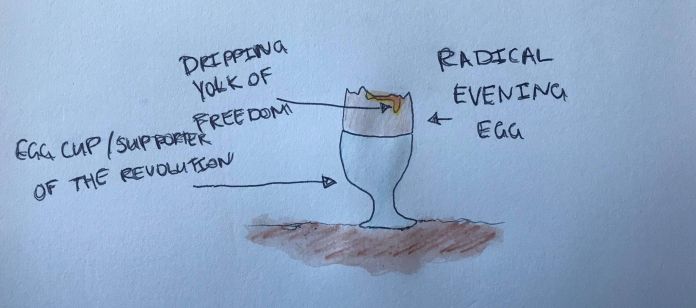 DRIPPING
YOLK OF
FREEDOM
RADICAL
EVENING
EGG
EGG CUP/SUPPORTER
OF THE REVOLUTION